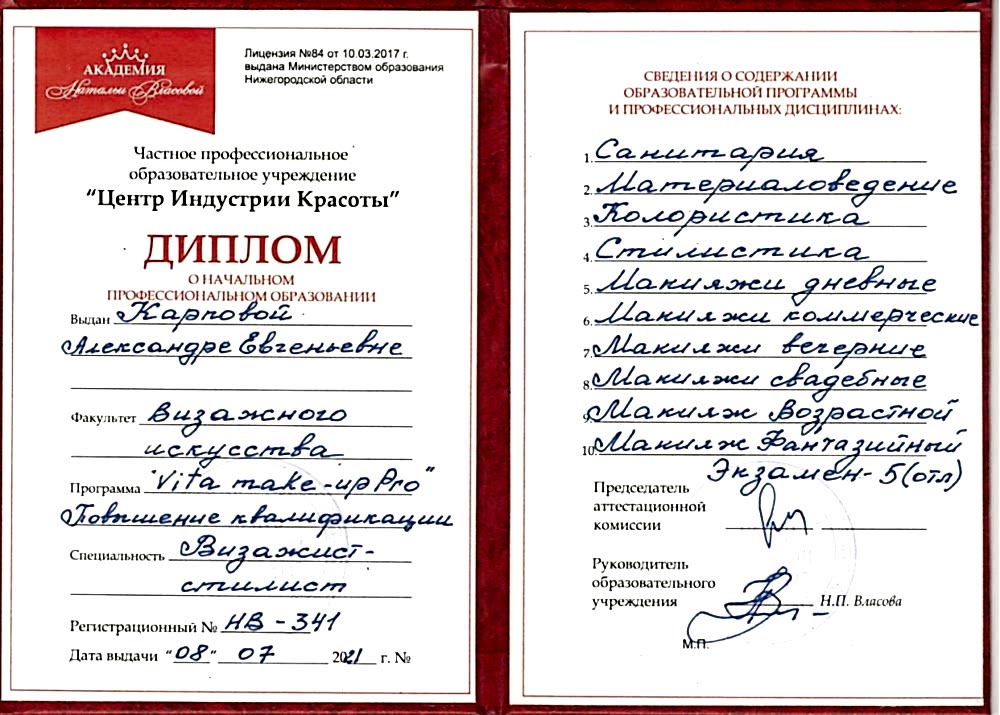 АКАДЕМИЯ
Натальи Власовой
Лицензия №84 от 10.03.2017 г.
выдана Министерством образования
Нижегородской области
Частное профессиональное
образовательное учреждение
“Центр Индустрии Красоты”
ДИПЛОМ
О НАЧАЛЬНОМ
ПРОФЕССИОНАЛЬНОМ ОБРАЗОВАНИИ
Выдан Карповой
Александре Евгеньевне
Факультет Визажного
искусства
Программа "Vita make-up Pro"
Повышение квалификации
Специальность Визажист-
стилист
Регистрационный № НВ - 341
Дата выдачи “08” 07 2021 г. №
СВЕДЕНИЯ О СОДЕРЖАНИИ
ОБРАЗОВАТЕЛЬНОЙ ПРОГРАММЫ
И ПРОФЕССИОНАЛЬНЫХ ДИСЦИПЛИНАХ:
1. Санитария
2. Материаловедение
3. Колористика
4. Стилистика
5. Макияжи дневные
6. Макияжи коммерческие
7. Макияжи вечерние
8. Макияжи свадебные
9. Макияж Возрастной
10. Макияж Фантазийный
Экзамен - 5 (отл)
Председатель
аттестационной
комиссии
Руководитель
образовательного
учреждения Н.П. Власова
М.П.